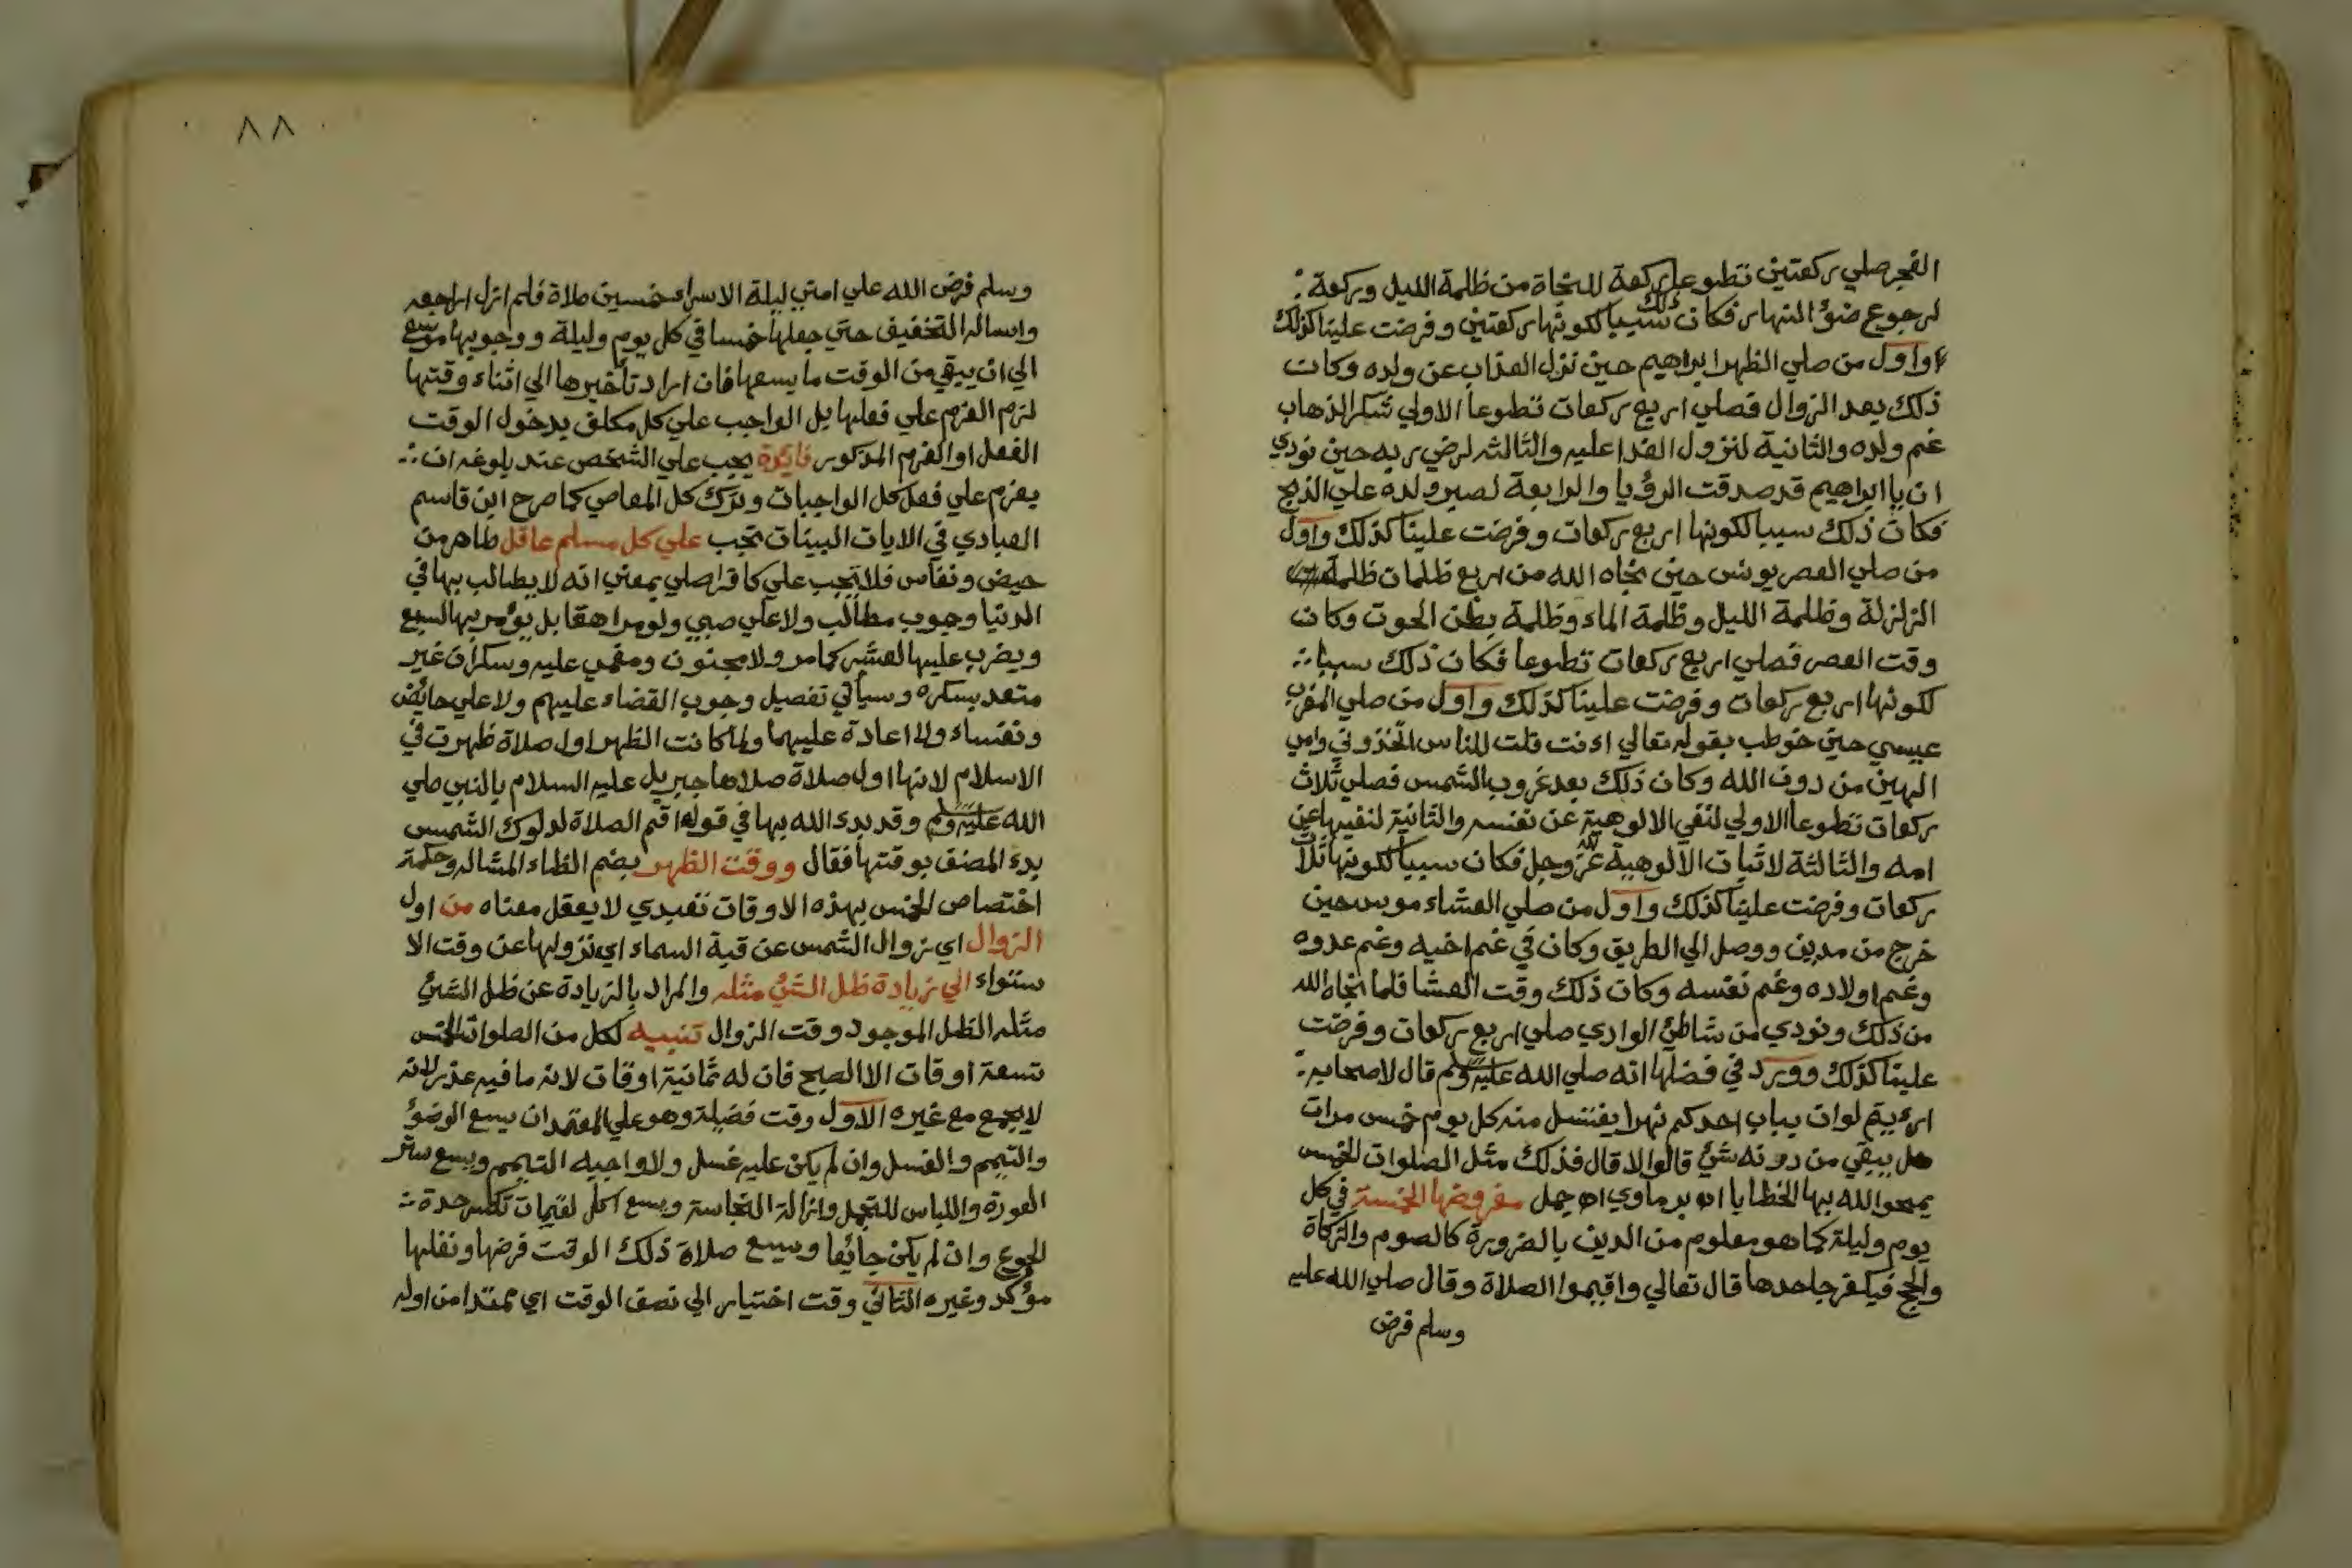 الفجر صلي ركعتين تطوعا ركعة للنجاة من ظلمة الليل وركعة
لرجوع ضوٴ النهار فكان ذلك سببا لكونها ركعتين وفرضت علينا كذلك
واول من صلي الظهر ابراهيم حين نزل العذاب عن ولده وكان
ذلك بعد الزوال فصلي اربع ركعات تطوعا الاولي شكر الذهاب
غم ولده والثانية لنزول الفدا عليه والثالثه لرضي ربه حين نودي
ان يا ابراهيم قد صدقت الرؤيا والرابعة لصبر ولده علي الذبح
فكان ذلك سببا لكونها اربع ركعات وفرضت علينا كذلك واول
من صلي العصر يونس حين نجاه الله من اربع ظلمات ظلمة
الزلزلة وظلمة الليل وظلمة الماء وظلمة بطن الحوت وكان
وقت العصر فصلي اربع ركعات تطوعا فكان ذلك سببا
لكونها اربع ركعات وفرضت علينا كذلك واول من صلي المغرب
عيسي حين خوطب بقوله تعالي اءنت قلت للناس اتخذوني وامي
الهين من دون الله وكان ذلك بعد غروب الشمس فصلي ثلاث
ركعات تطوعا الاولي لنفي الالوهية عن نفسه والثانية لنفيها عن
امه والثالثة لاثبات الالوهية لله عز وجل فكان سببا لكونها ثلاث
ركعات وفرضت علينا كذلك واول من صلي العشاء موسي حين
خرج من مدين ووصل الي الطريق وكان في غم اخيه وغم عدوه
وغم اولاده وغم نفسه وكان ذلك وقت العشا فلما نجاه الله
من ذلك ونودي من شاطئ الوادي صلي اربع ركعات وفرضت
علينا كذلك وورد في فضلها انه صلي الله عليه وسلم قال لاصحابه
ارءيتم لو ان بباب احدكم نهرا يغتسل منه كل يوم خمس مرات
هل يبقي من درنه شئ قالوا لا قال فذلك مثل الصلوات الخمس
يمحو الله بها الخطايا اه برماوي اه جمل مفروضها الخمسة في كل
يوم وليلة كما هو معلوم من الدين بالضرورة كالصوم والزكاة
والحج فيكفر جاحدها قال تعالي واقيموا الصلاة وقال صلي الله عليه
وسلم فرض
٨٨
وسلم فرض الله علي امتي ليلة الاسراء خمسين صلاة فلم ازل اراجعه
واساله التخفيف حتي جعلها خمسا في كل يوم وليلة ووجوبها موسع
الي ان يبقي من الوقت ما يسعها فان اراد تأخيرها الي اثناء وقتها
لزم العزم علي فعلها بل الواجب علي كل مكلف بدخول الوقت
الفعل او العزم المذكور فايدة يجب علي الشخص عند بلوغه ان
يعزم علي فعل كل الواجبات وترك كل المعاصي كما صرح ابن قاسم
العبادي في الايات البينات تجب علي كل مسلم عاقل طاهر من
حيض ونفاس فلا تجب علي كافر اصلي بمعني انه لا يطالب بها في
الدنيا وجوب مطالب ولا علي صبي ولو مراهقا بل يؤمر بها لسبع
ويضرب عليها لعشر كما مر ولا مجنون ومغمي عليه وسكران غير
متعد بسكره وسيأتي تفصيل وجوب القضاء عليهم ولا علي حائض
ونفساء ولا اعادة عليهما ولما كانت الظهر اول صلاة ظهرت في
الاسلام لانها اول صلاة صلاها جبريل عليه السلام بالنبي صلي
الله عليه وسلم وقد بدء الله بها في قوله اقم الصلاة لدلوك الشمس
بدء المصنف بوقتها فقال ووقت الظهر بضم الظاء المشاله وحكمة
اختصاص الخمس بهذه الاوقات تعبدي لا يعقل معناه من اول
الزوال اي زوال الشمس عن قبة السماء اي نزولها عن وقت الا
ستواء الي زيادة ظل الشئ مثله والمراد بالزيادة عن ظل الشئ
مثله الظل الموجود وقت الزوال تنبيه لكل من الصلوات الخمس
تسعة اوقات الا الصبح فان له ثمانية اوقات لانه ما فيه عذر لانه
لا يجمع مع غيره الاول وقت فضيلة وهو علي المعتمد ان يسع الوضوٴ
والتيمم والغسل وان لم يكن عليه غسل ولا واجبه التيمم ويسع ستر
العورة واللباس للتجمل وازالة النجاسة ويسع اكل لقيمات تكسر حدة
الجوع وان لم يكن جائعا ويسع صلاة ذلك الوقت فرضها ونفلها
مؤكد وغيره الثاني وقت اختيار الي نصف الوقت اي ممتدا من اوله